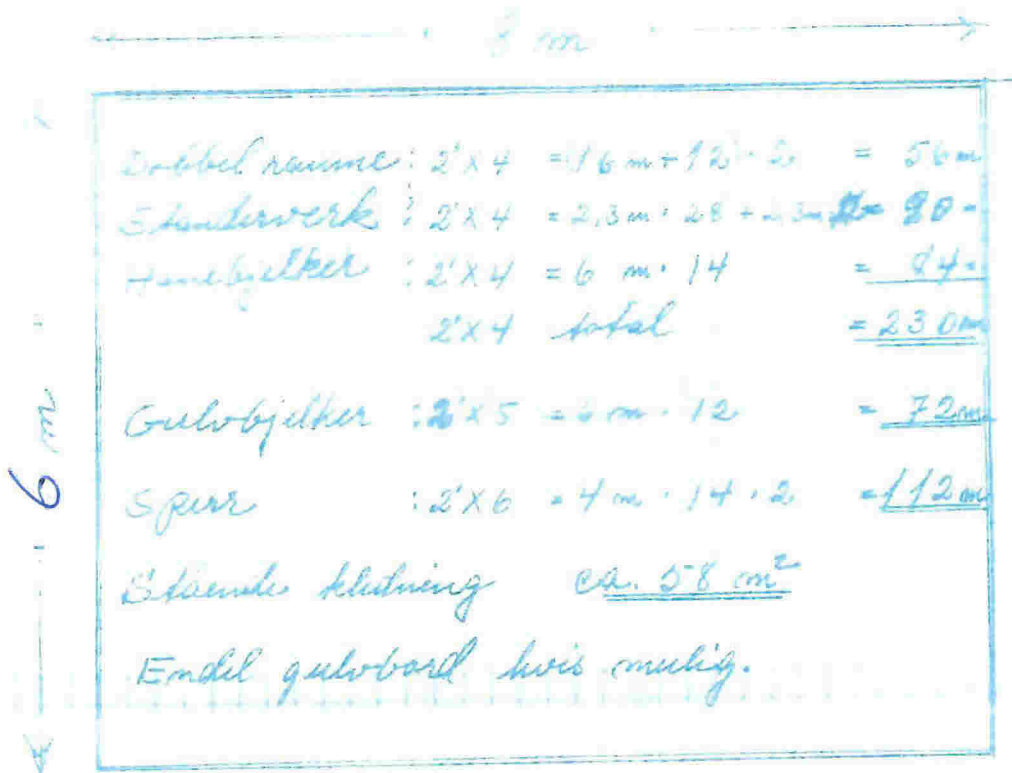 8 m
Dobbel raume : 2"x4 = 16 m + 12 · 2 = 56 m
Stenderverk : 2"x4 = 2,3 m · 28 + = 90 -
Hanebjelker : 2"x4 = 6 m · 14 = 84 -
2"x4 total = 230 m
6 m
Gulvbjelker : 2"x5 = 6 m · 12 = 72 m
Sperr : 2"x6 = 4 m · 14 · 2 = 112 m
Stående kledning ca. 58 m²
Endel gulvbord hvis mulig.